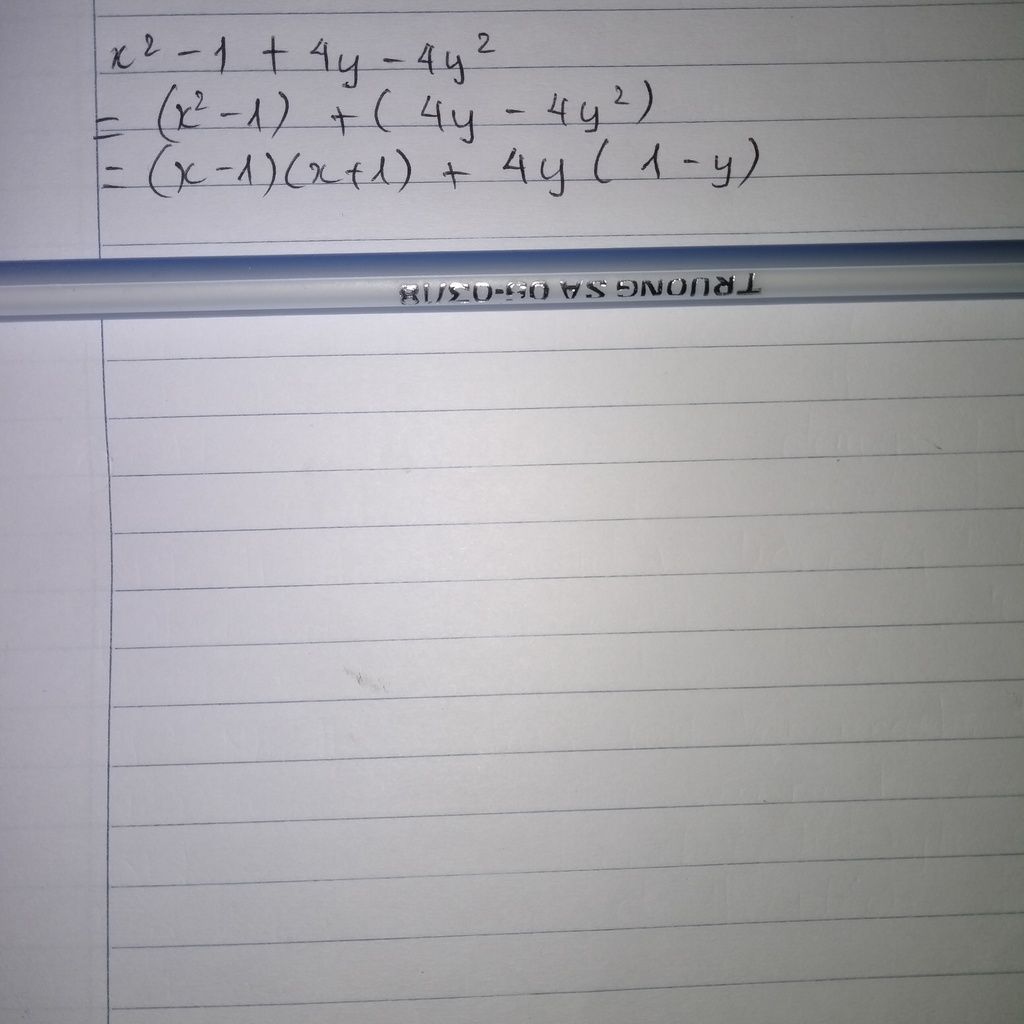 x² - 1 + 4y - 4y²
= (x² - 1) + ( 4y - 4y²)
= (x - 1)(x + 1) + 4y ( 1 - y)
TRUONG SA 05-03/18